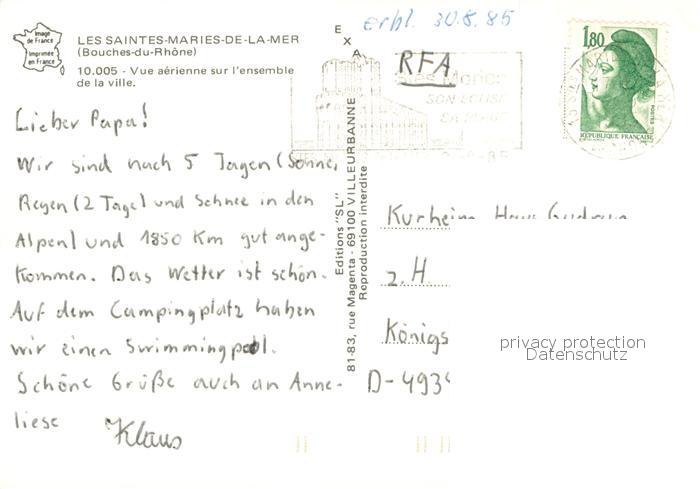 Image
de France
Imprimée
en France
LES SAINTES-MARIES-DE-LA-MER
(Bouches-du-Rhône)
10.005 - Vue aérienne sur l'ensemble
de la ville.
Lieber Papa!
Wir sind nach 5 Tagen (Sonne,
Regen (2 Tage) und Schnee in den
Alpen) und 1850 Km gut ange-
kommen. Das Wetter ist schön.
Auf dem Campingplatz haben
wir einen Swimmingpool.
Schöne Grüße auch an Anne-
liese
Klaus
EXA
Editions "SL"
81-83, rue Magenta - 69100 VILLEURBANNE
Reproduction interdite
erhl. 30.8.85
RFA
SON EGLISE
1,80
POSTES
REPUBLIQUE FRANÇAISE
Kurheim Haus Gudrun
z.H.
Königs
D-4934
privacy protection
Datenschutz